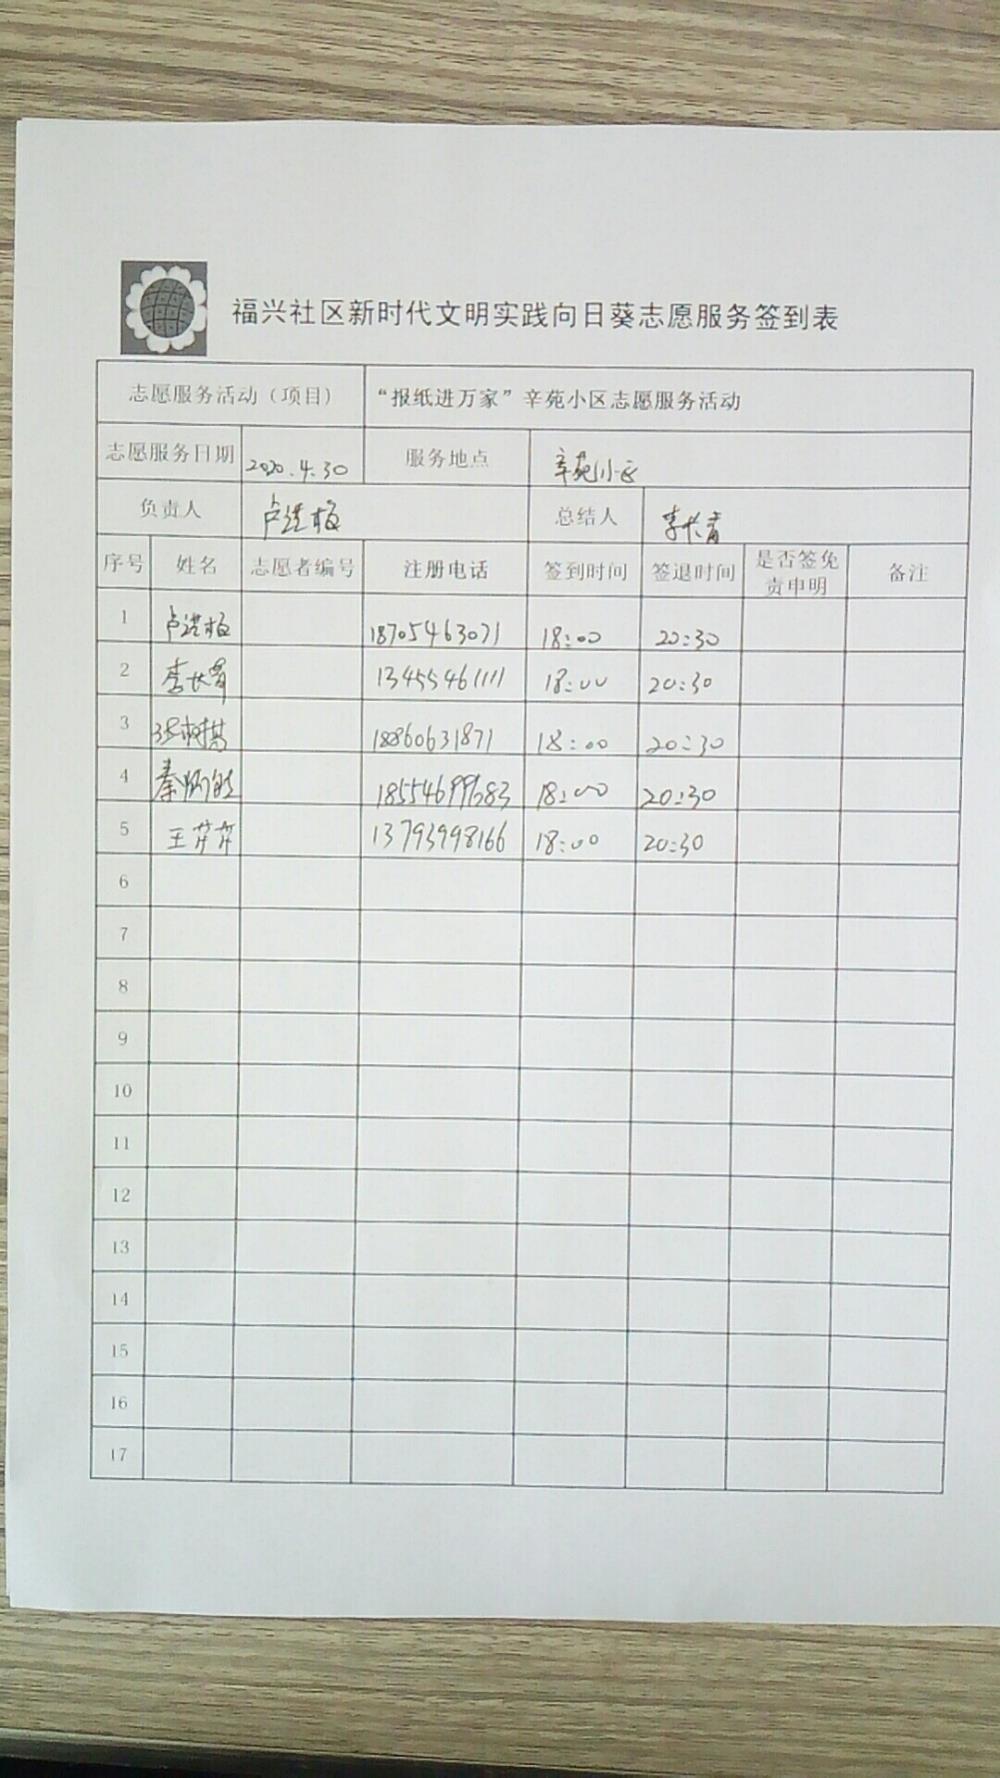 福兴社区新时代文明实践向日葵志愿服务签到表
志愿服务活动（项目） “报纸进万家”辛苑小区志愿服务活动
志愿服务日期 2020.4.30 服务地点 辛苑小区
负责人 卢洪梅 总结人 李长青
序号 姓名 志愿者编号 注册电话 签到时间 签退时间 是否签免责申明 备注
1 卢洪梅 18705463071 18:00 20:30
2 李长青 13455461111 18:00 20:30
3 18860631871 18:00 20:30
4 秦 18:00 20:30
5 王芹芹 13793998166 18:00 20:30
6
7
8
9
10
11
12
13
14
15
16
17